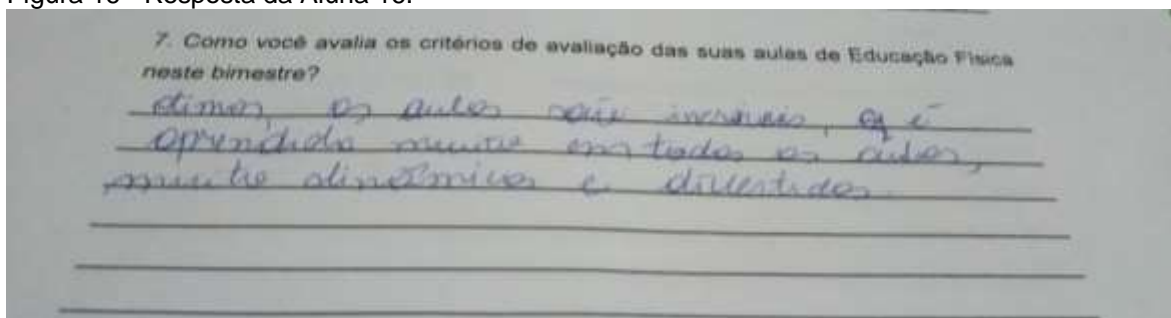 7. Como você avalia os critérios de avaliação das suas aulas de Educação Física
neste bimestre?
otimas, as aulas são incriveis, e é
aprendido muito em todas as aulas,
muito dinâmicas e divertidas.